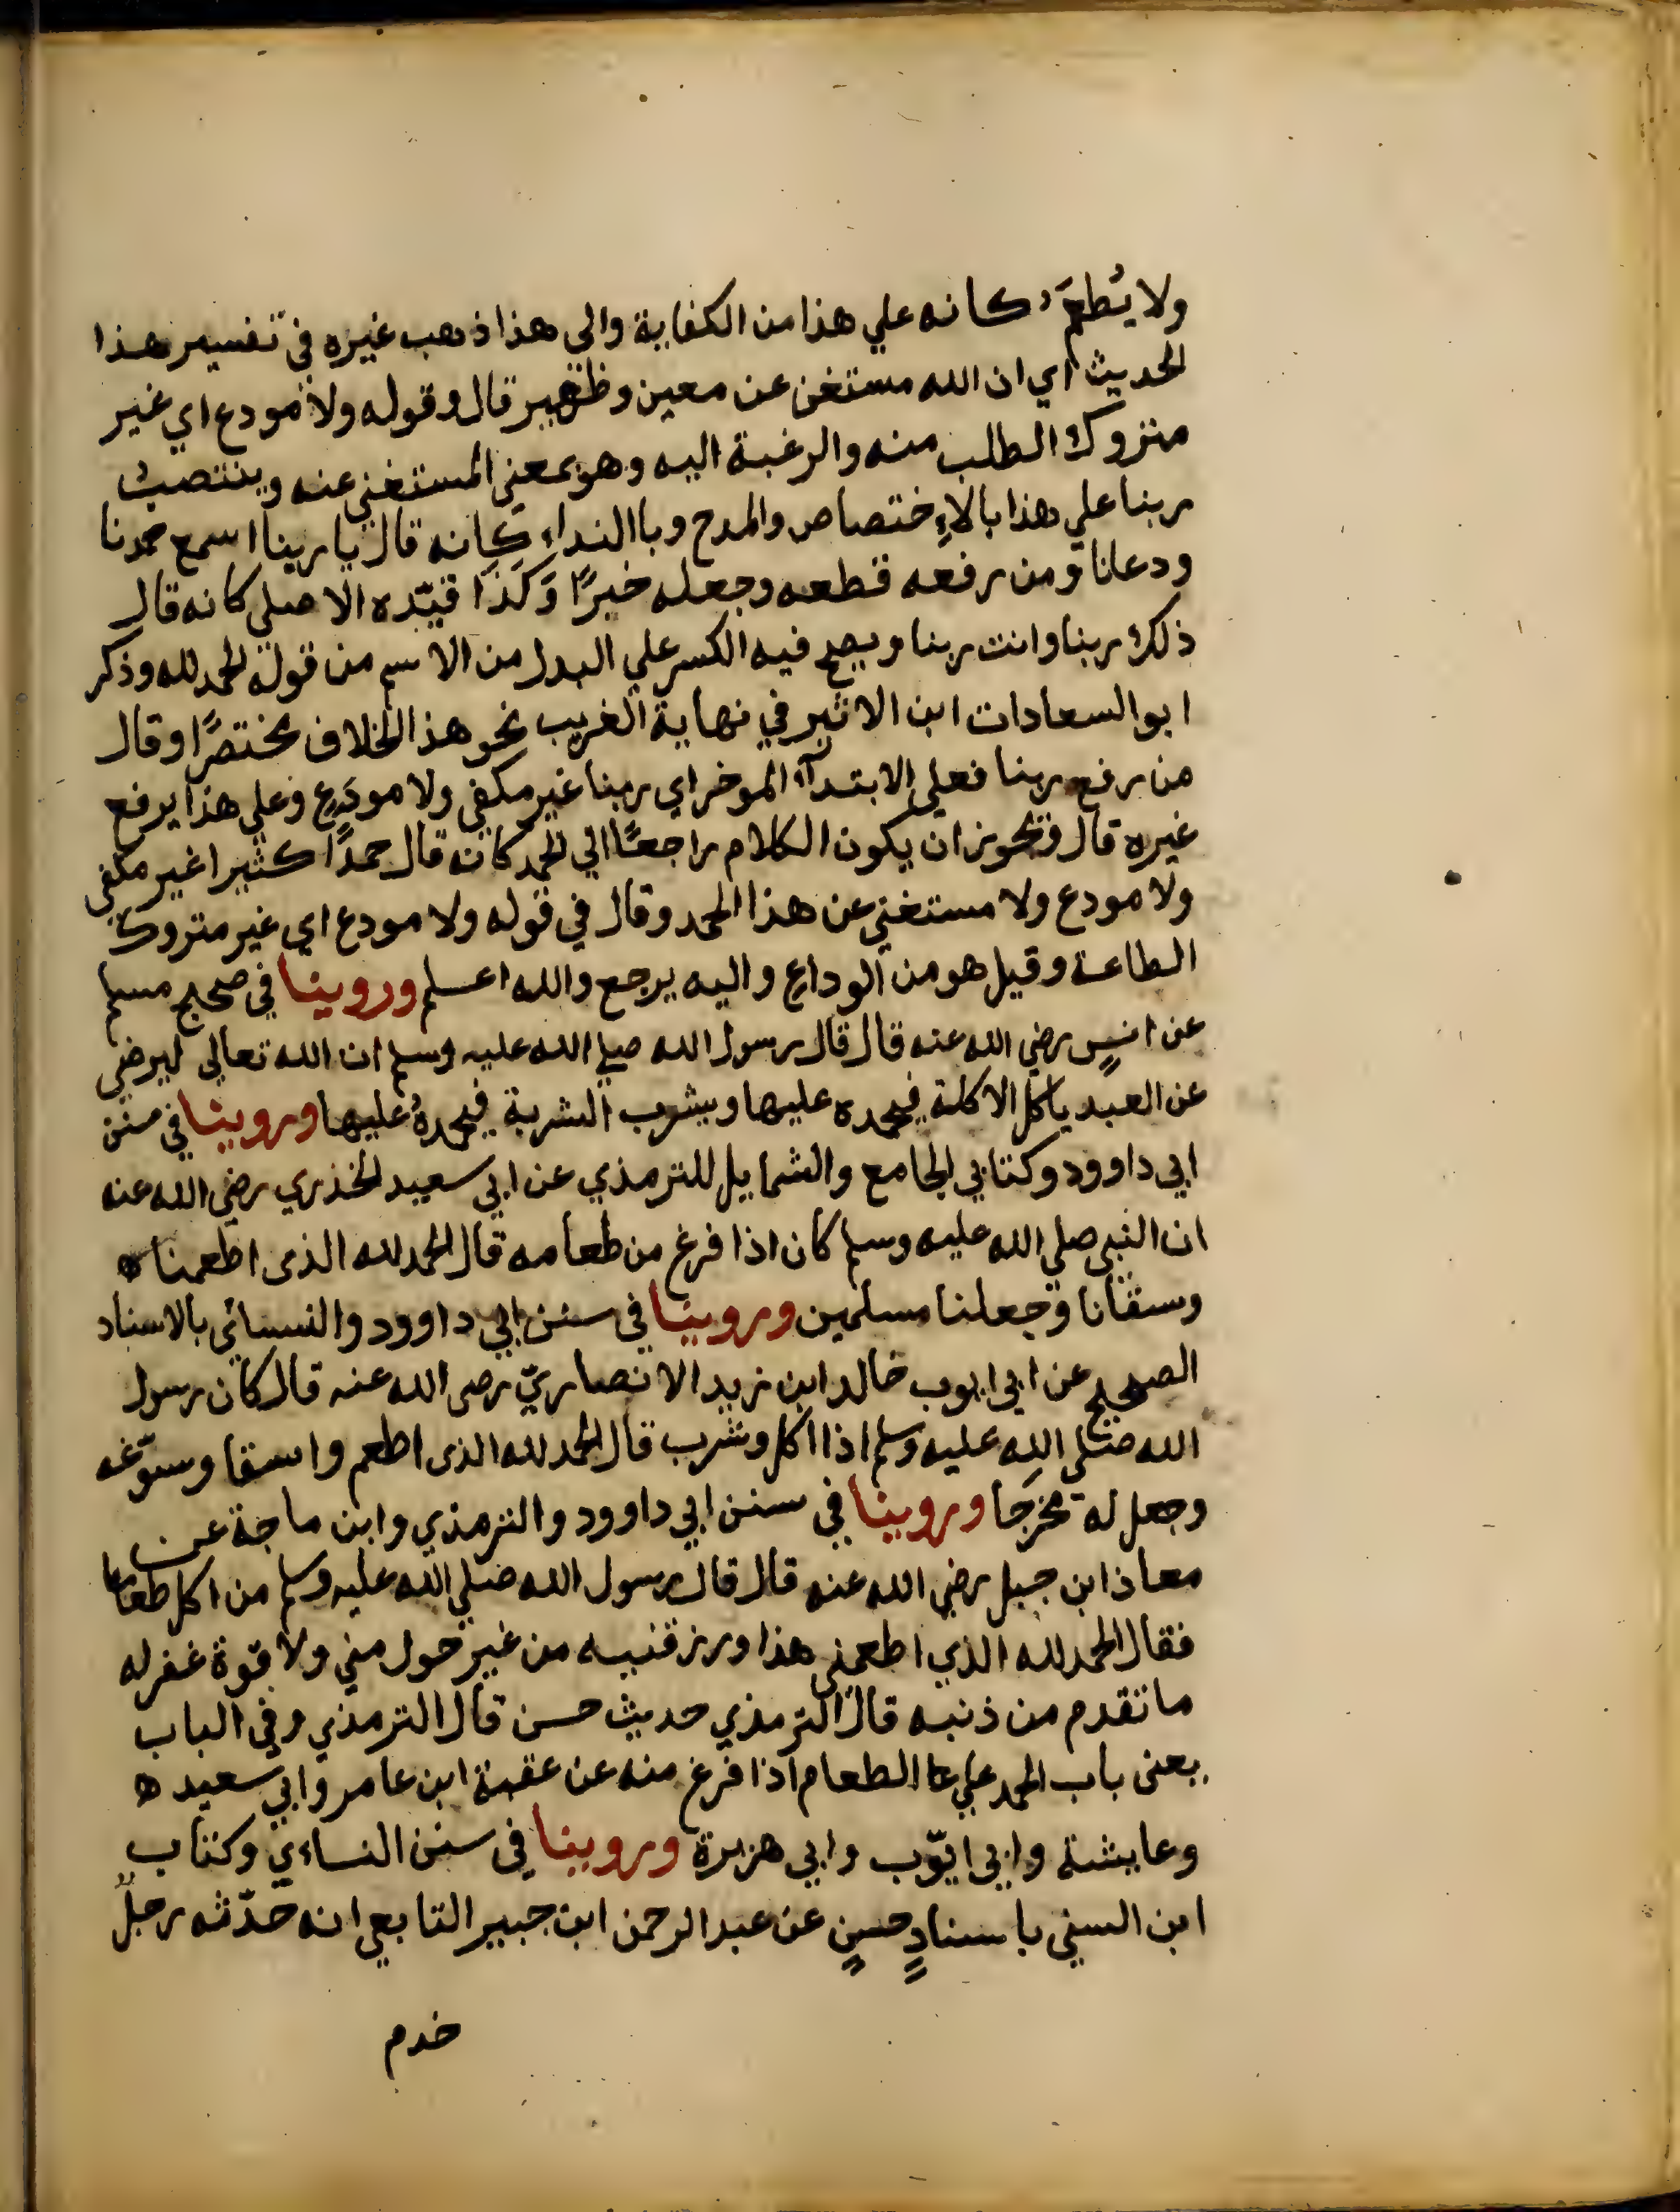 ولا يُطعَمُ كانه علي هذا من الكفاية والي هذا ذهب غيره في تفسير هذا
الحديث اي ان الله مستغن عن معين وظهير قال وقوله ولا مودع اي غير
متروك الطلب منه والرغبة اليه وهو بمعني المستغني عنه وينتصبُ
ربنا علي هذا بالاِختصاص والمدح وباالنداء كانه قال يا ربنا اسمع حمدنا
ودعانا ومن رفعه قطعه وجعله خيرًا وَكَذَا قيّده الاصلي كانه قال
ذلك ربنا وانت ربنا ويصح فيه الكسر علي البدل من الاسم من قوله الحمد لله وذكر
ابو السعادات ابن الاثير في نهاية الغريب نحو هذا الخلاف مختصرًا وقال
من رفع ربنا فعلي الابتدآء الموخر اي ربنا غير مكفي ولا مودَعٍ وعلي هذا يرفع
غيره قال ويجوز ان يكون الكلام راجعًا الي الحمد كانه قال حمدًا كثيرا غير مكفي
ولا مودع ولا مستغني عن هذا الحمد وقال في قوله ولا مودع اي غير متروك
الطاعة وقيل هو من الوداع واليه يرجع والله اعلم وروينا في صحيح مسلم
عن انسٍ رضي الله عنه قال قال رسول الله صلي الله عليه وسلم ان الله تعالي ليرضي
عن العبد ياكل الاكلة فيحمده عليها ويشرب الشربة فيحمدهُ عليها وروينا في سنن
ابي داوود وكتابي الجامع والشمايل للترمذي عن ابي سعيد الخذري رضي الله عنه
ان النبي صلي الله عليه وسلم كان اذا فرغ من طعامه قال الحمد لله الذى اطعمنا ه
وسقانا وجعلنا مسلمين وروينا في سنن ابي داوود والنسائي بالاسناد
الصحيح عن ابي ايوب خالد ابن زيد الانصاريّ رضى الله عنه قال كان رسول
الله صلي الله عليه وسلم اذا اكل وشرب قال الحمد لله الذى اطعم واسقا وسوّغه
وجعل له مخرَجا وروينا في سنن ابي داوود والترمذي وابن ماجة عن
معاذ ابن جبل رضي الله عنه قال قال رسول الله صلي الله عليه وسلم من اكل طعاما
فقال الحمد لله الذي اطعمني هذا ورزقنيه من غير حول مني ولا قوة غفر له
ما تقدم من ذنبه قال الترمذي حديث حسن قال الترمذي وفي الباب
يعنى باب الحمد علي الطعام اذا فرغ منه عن عقبة ابن عامر وابي سعيد ه
وعايشة وابي ايّوب وابي هريرة وروينا في سنن النساءي وكتاب
ابن السني باسنادٍ حسنٍ عن عبد الرحمن ابن جبير التابعي انه حدّثه رجلٌ
خدم